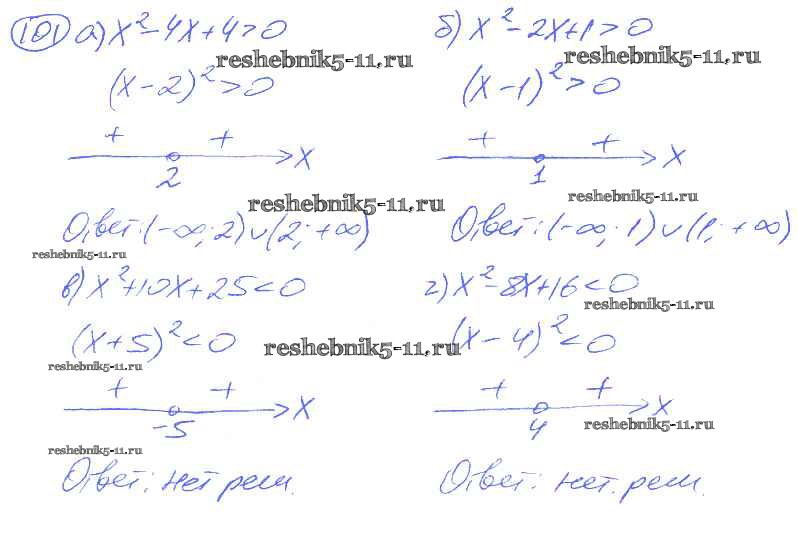 101 а) x² - 4x + 4 > 0
reshebnik5-11.ru
(x - 2)² > 0
+ +
2 x
reshebnik5-11.ru
Ответ: (-∞; 2) ∪ (2; +∞)
reshebnik5-11.ru
б) x² - 2x + 1 > 0
reshebnik5-11.ru
(x - 1)² > 0
+ +
1 x
reshebnik5-11.ru
Ответ: (-∞; 1) ∪ (1; +∞)
в) x² + 10x + 25 < 0
(x + 5)² < 0
reshebnik5-11.ru
reshebnik5-11.ru
+ +
-5 x
reshebnik5-11.ru
Ответ: нет реш.
г) x² - 8x + 16 < 0
reshebnik5-11.ru
(x - 4)² < 0
+ +
4 x
reshebnik5-11.ru
Ответ: нет. реш.